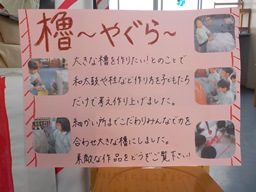 櫓～やぐら～
大きな櫓を作りたい!とのことで
和太鼓や柱など作り方を子どもたち
だけで考え作り上げました。
細かい所までこだわりみんなで力を
合わせ大きな櫓にしました。
素敵な作品をどうぞご覧下さい!